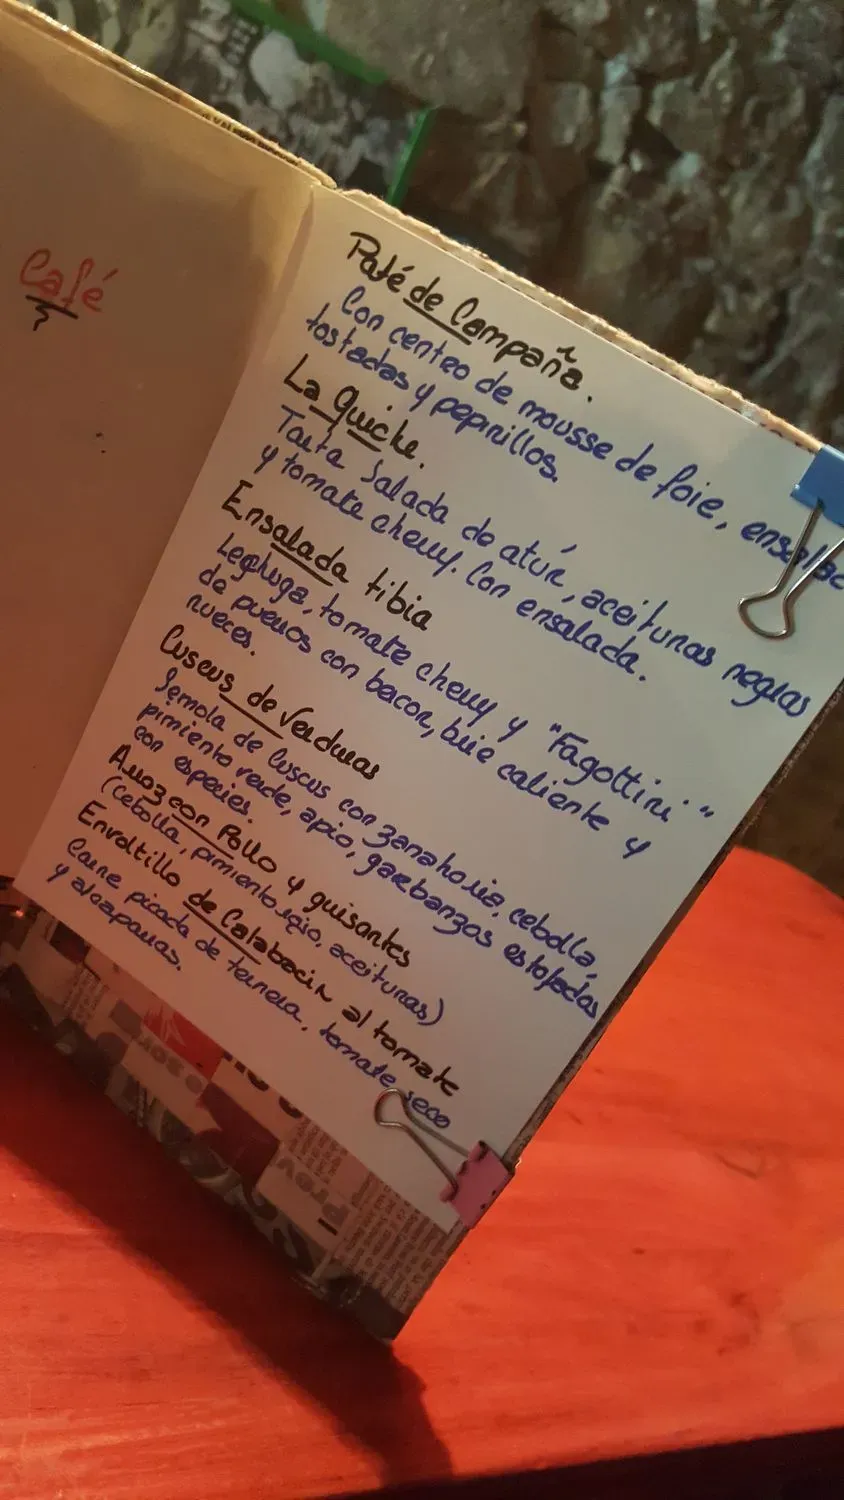 Café
Paté de Campaña.
Con centro de mousse de foie, ensalad
tostadas y pepinillos.
La Quiche.
Tarta Salada de atún, aceitunas negras
y tomate cherry. Con ensalada.
Ensalada tibia
Lechuga, tomate cherry y "Fagottini"
de puerros con bacon, brie caliente y
nueces.
Cuscus de Verduras
Semola de Cuscus con zanahoria, cebolla,
pimiento verde, apio, garbanzos estofados
con especies.
Arroz con Pollo y guisantes
(Cebolla, pimiento rojo, aceitunas)
Enroltillo de Calabacin al tomate
Carne picada de ternera, tomate seco
y alcaparras.